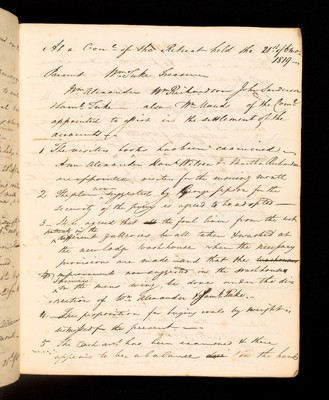 At a Come of the Retreat held the 21st of 6 mo
1819 —
Present Wm Tuke Treasurer
Wm Alexander Wm Richardson John Sanderson
Saml Tuke — also Wm of the Come
appointed to assist in the settlement of the
accounts —
1 The visitors book has been examined —
Ann Alexander Hanh Wilson & Martha Richardson
are appointed visitors for the ensuing month
2 The plan now suggested by George for the
security of the is agreed to be adopted —
3 It is agreed that the foul linen from the
galleries be all taken & washed at
the new lodge washhouse when the necessary
provisions are made and that the
improvements now suggested in the washhouse
in the mens wing, be done under the di-
rection of Wm Alexander & Saml Tuke. —
4 The proposition for buying coals by weight is
for the present —
5 The Cash act has been examined & there
appears to be a balance due (in the hands